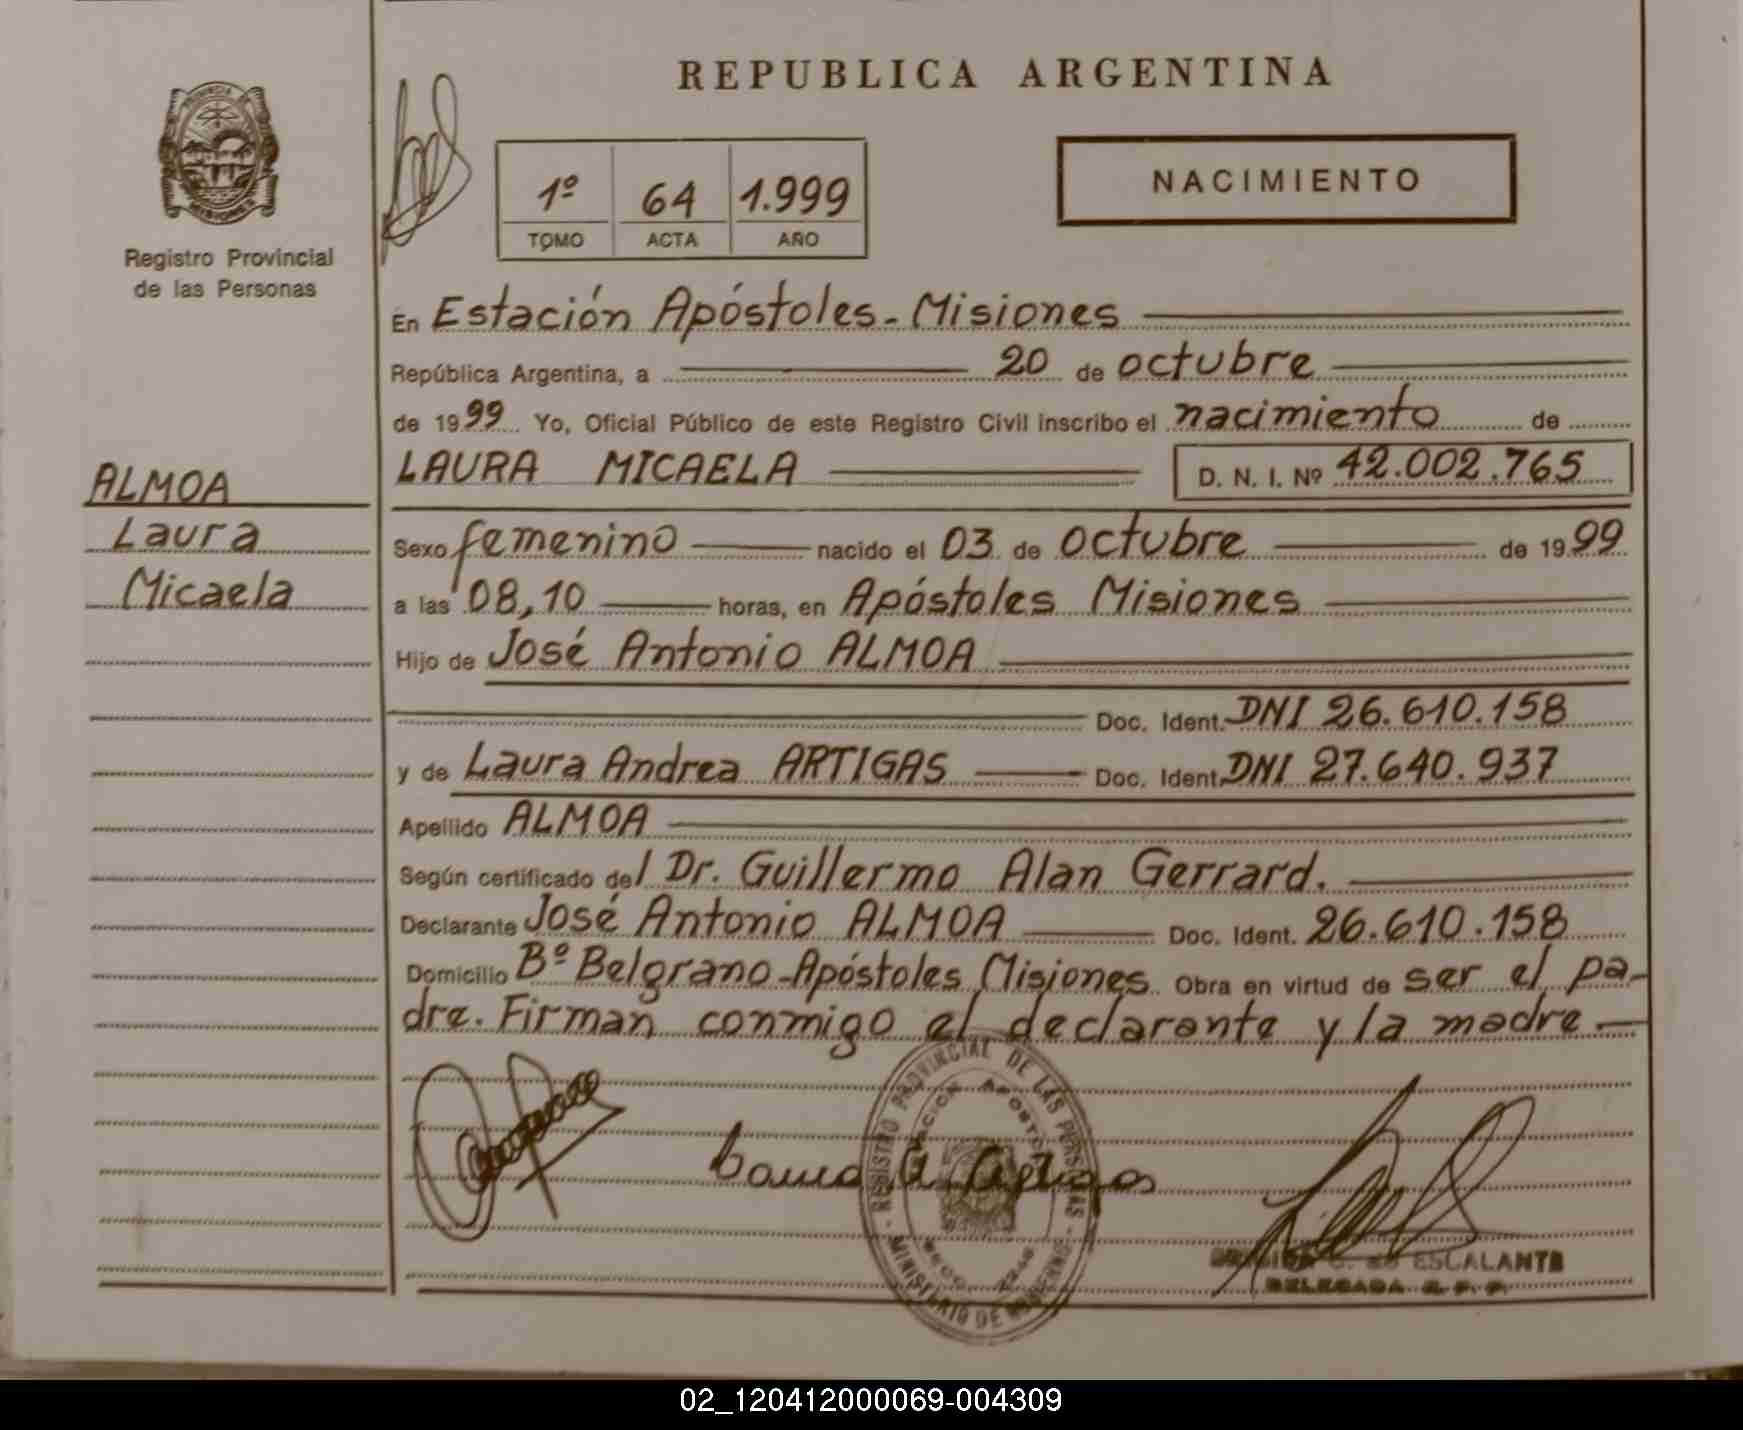 REPUBLICA ARGENTINA
PROVINCIA DE
MISIONES
Registro Provincial
de las Personas
1º 64 1.999
TOMO ACTA AÑO
NACIMIENTO
En Estación Apóstoles - Misiones
República Argentina, a 20 de octubre
de 1999 Yo, Oficial Público de este Registro Civil inscribo el nacimiento de
LAURA MICAELA D. N. I. Nº 42.002.765
ALMOA
Laura
Micaela
Sexo femenino nacido el 03 de octubre de 1999
a las 08,10 horas, en Apóstoles Misiones
Hijo de José Antonio ALMOA
Doc. Ident. DNI 26.610.158
y de Laura Andrea ARTIGAS Doc. Ident. DNI 27.640.937
Apellido ALMOA
Según certificado del Dr. Guillermo Alan Gerrard.
Declarante José Antonio ALMOA Doc. Ident. 26.610.158
Domicilio Bº Belgrano - Apóstoles Misiones Obra en virtud de ser el pa-
dre. Firman conmigo el declarante y la madre
REGISTRO PROVINCIAL DE LAS PERSONAS
MINISTERIO DE GOBIERNO
Laura A. Artigas
ESCALANTE
DELEGADA R. P. P.
02_120412000069-004309